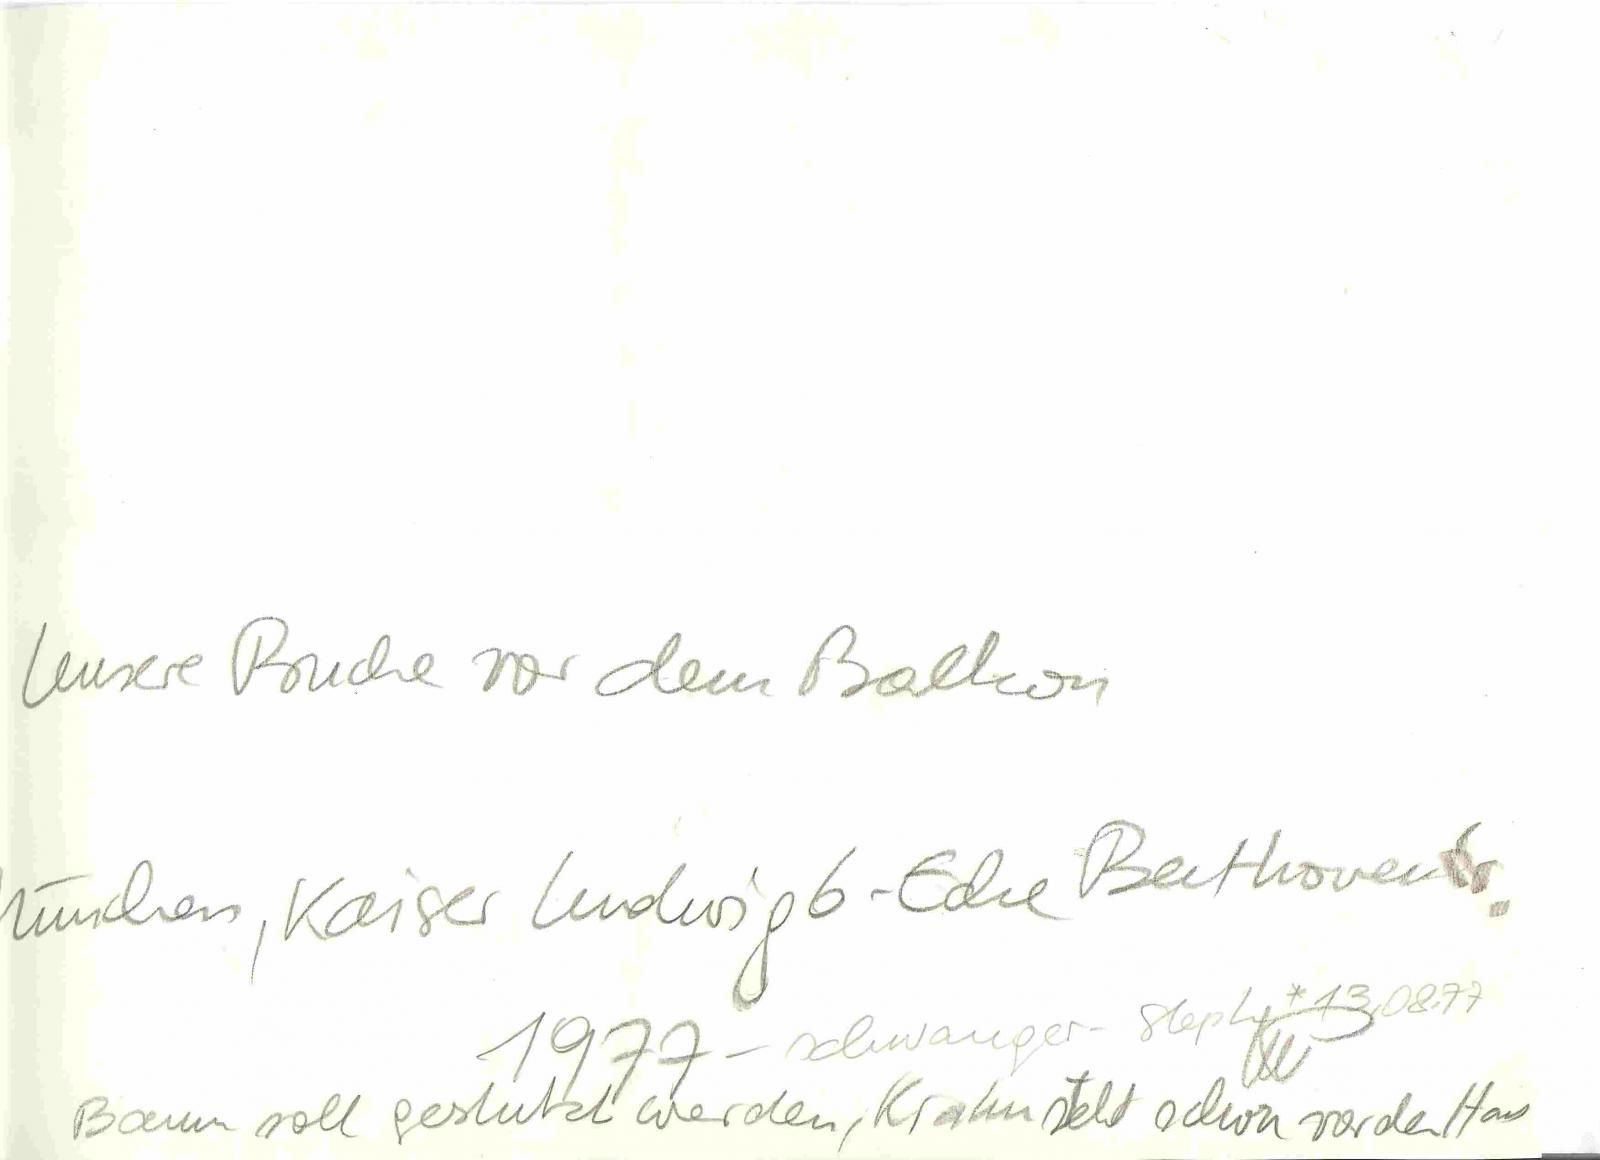 Unsere Buche vor dem Balkon
München, Kaiser Ludwig 6 - Ecke Beethovenstr.
1977 - schwanger - Steph *13.08.77
Baum soll gestutzt werden, Krahn steht schon vor dem Haus